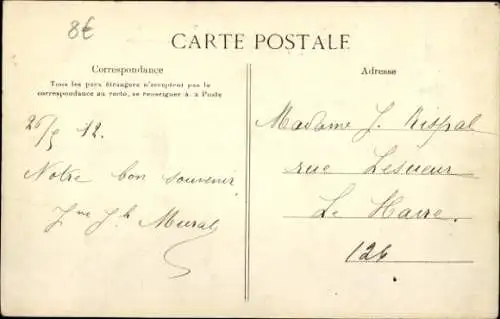 8€
CARTE POSTALE
Correspondance
Tous les pays étrangers n'acceptent pas la
correspondance au recto, se renseigner à la Poste
Adresse
26/5 12.
Notre bon souvenir
Murat
Madame J. Rispal
rue Lesueur
Le Havre.
126